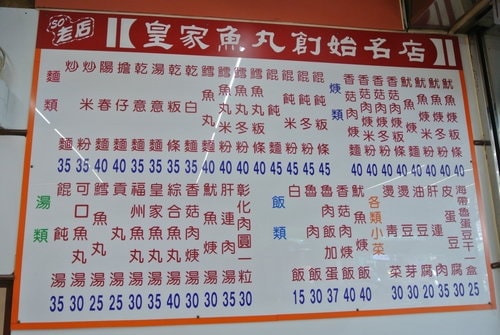 50' 老店
皇家魚丸創始名店
麵類
炒麵 35
炒米粉 35
陽春麵 40
擔仔麵 40
乾意麵 35
湯意麵 35
乾粄條 35
乾白麵 35
鱈魚丸麵 40
鱈魚丸米粉 40
鱈魚丸冬粉 40
鱈魚丸粄條 40
餛飩麵 45
餛飩米粉 45
餛飩冬粉 45
餛飩粄條 45
焿類
香菇肉焿麵 40
香菇肉焿米粉 40
香菇肉焿冬粉 40
香菇肉焿粄條 40
魷魚焿麵 40
魷魚焿米粉 40
魷魚焿冬粉 40
魷魚焿粄條 40
湯類
餛飩湯 35
可口湯 30
鱈魚丸湯 25
貢丸湯 25
福州丸湯 30
皇家魚丸湯 35
綜合丸湯 40
香菇肉焿湯 30
魷魚焿湯 30
肝連肉湯 35
彰化肉圓一粒 30
飯類
白飯 15
魯肉飯 30
魯肉飯加蛋 37
香菇肉焿飯 40
魷魚焿飯 40
各類小菜
燙青菜 30
燙豆芽 30
油豆腐 20
肝連肉 30
皮蛋豆腐 25
海帶魯蛋豆干一盒 35